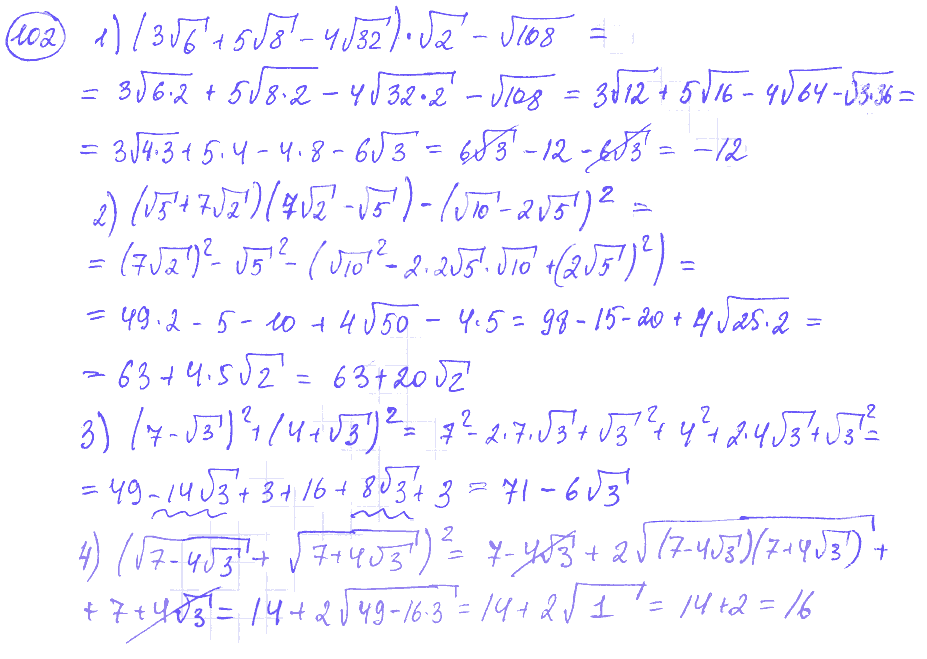 102 1) (3√6 + 5√8 - 4√32)·√2 - √108 =
= 3√(6·2) + 5√(8·2) - 4√(32·2) - √108 = 3√12 + 5√16 - 4√64 - √(3·36) =
= 3√(4·3) + 5·4 - 4·8 - 6√3 = 6√3 - 12 - 6√3 = -12
2) (√5 + 7√2)(7√2 - √5) - (√10 - 2√5)² =
= (7√2)² - √5² - (√10² - 2·2√5·√10 + (2√5)²) =
= 49·2 - 5 - 10 + 4√50 - 4·5 = 98 - 15 - 20 + 4√(25·2) =
= 63 + 4·5√2 = 63 + 20√2
3) (7 - √3)² + (4 + √3)² = 7² - 2·7·√3 + √3² + 4² + 2·4√3 + √3² =
= 49 - 14√3 + 3 + 16 + 8√3 + 3 = 71 - 6√3
4) (√(7 - 4√3) + √(7 + 4√3))² = 7 - 4√3 + 2√((7 - 4√3)(7 + 4√3)) +
+ 7 + 4√3 = 14 + 2√(49 - 16·3) = 14 + 2√1 = 14 + 2 = 16